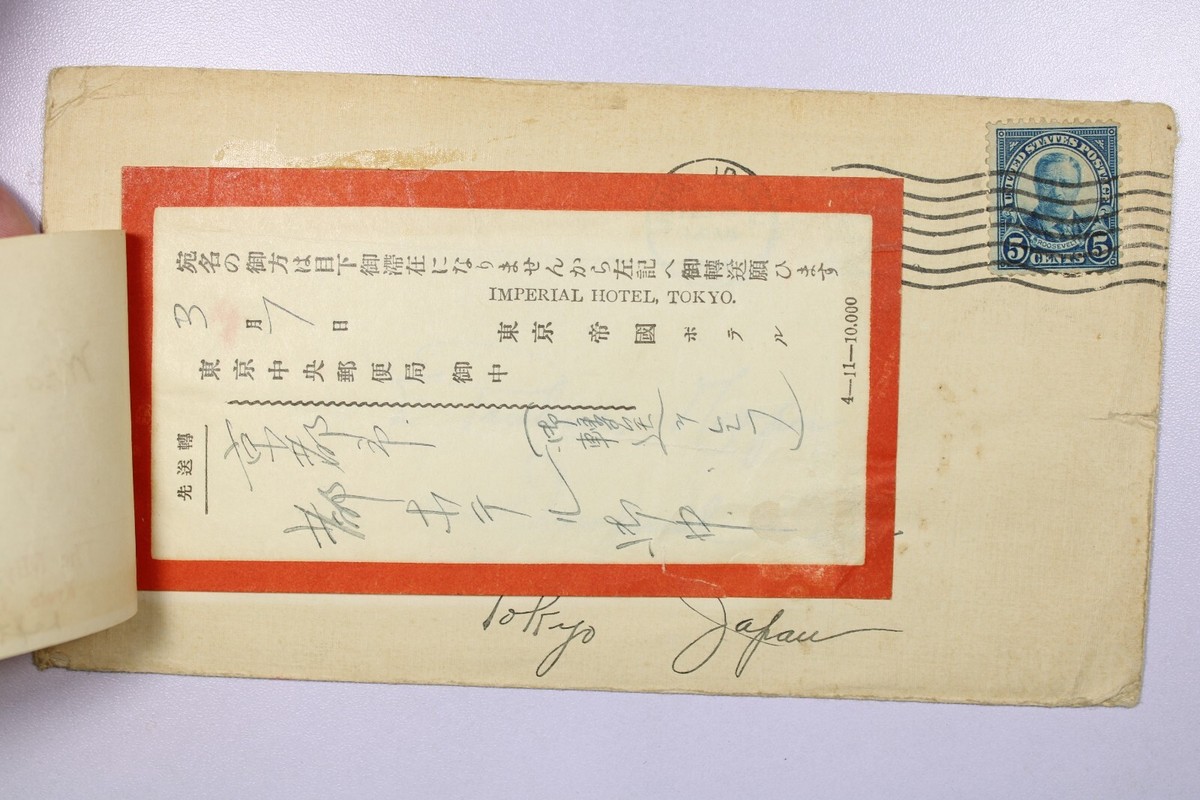 UNITED STATES POSTAGE
ROOSEVELT
5 CENTS 5
宛名の御方は目下御滞在になりませんから左記へ御轉送願ひます
IMPERIAL HOTEL, TOKYO.
3月7日
東京帝國ホテル
東京中央郵便局御中
轉送先
京都市
都ホテル御中
4—11—10.000
Tokyo Japan